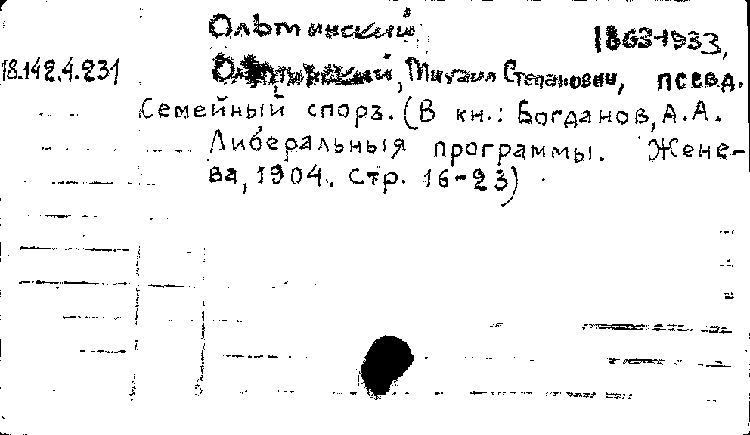 Ольминский
1863-1933,
18.142.4.231 Ольминский, Михаил Степанович, псевд.
Семейный споръ. (В кн.: Богданов, А.А.
Либеральныя программы. Жене-
ва, 1904. стр. 16-23)